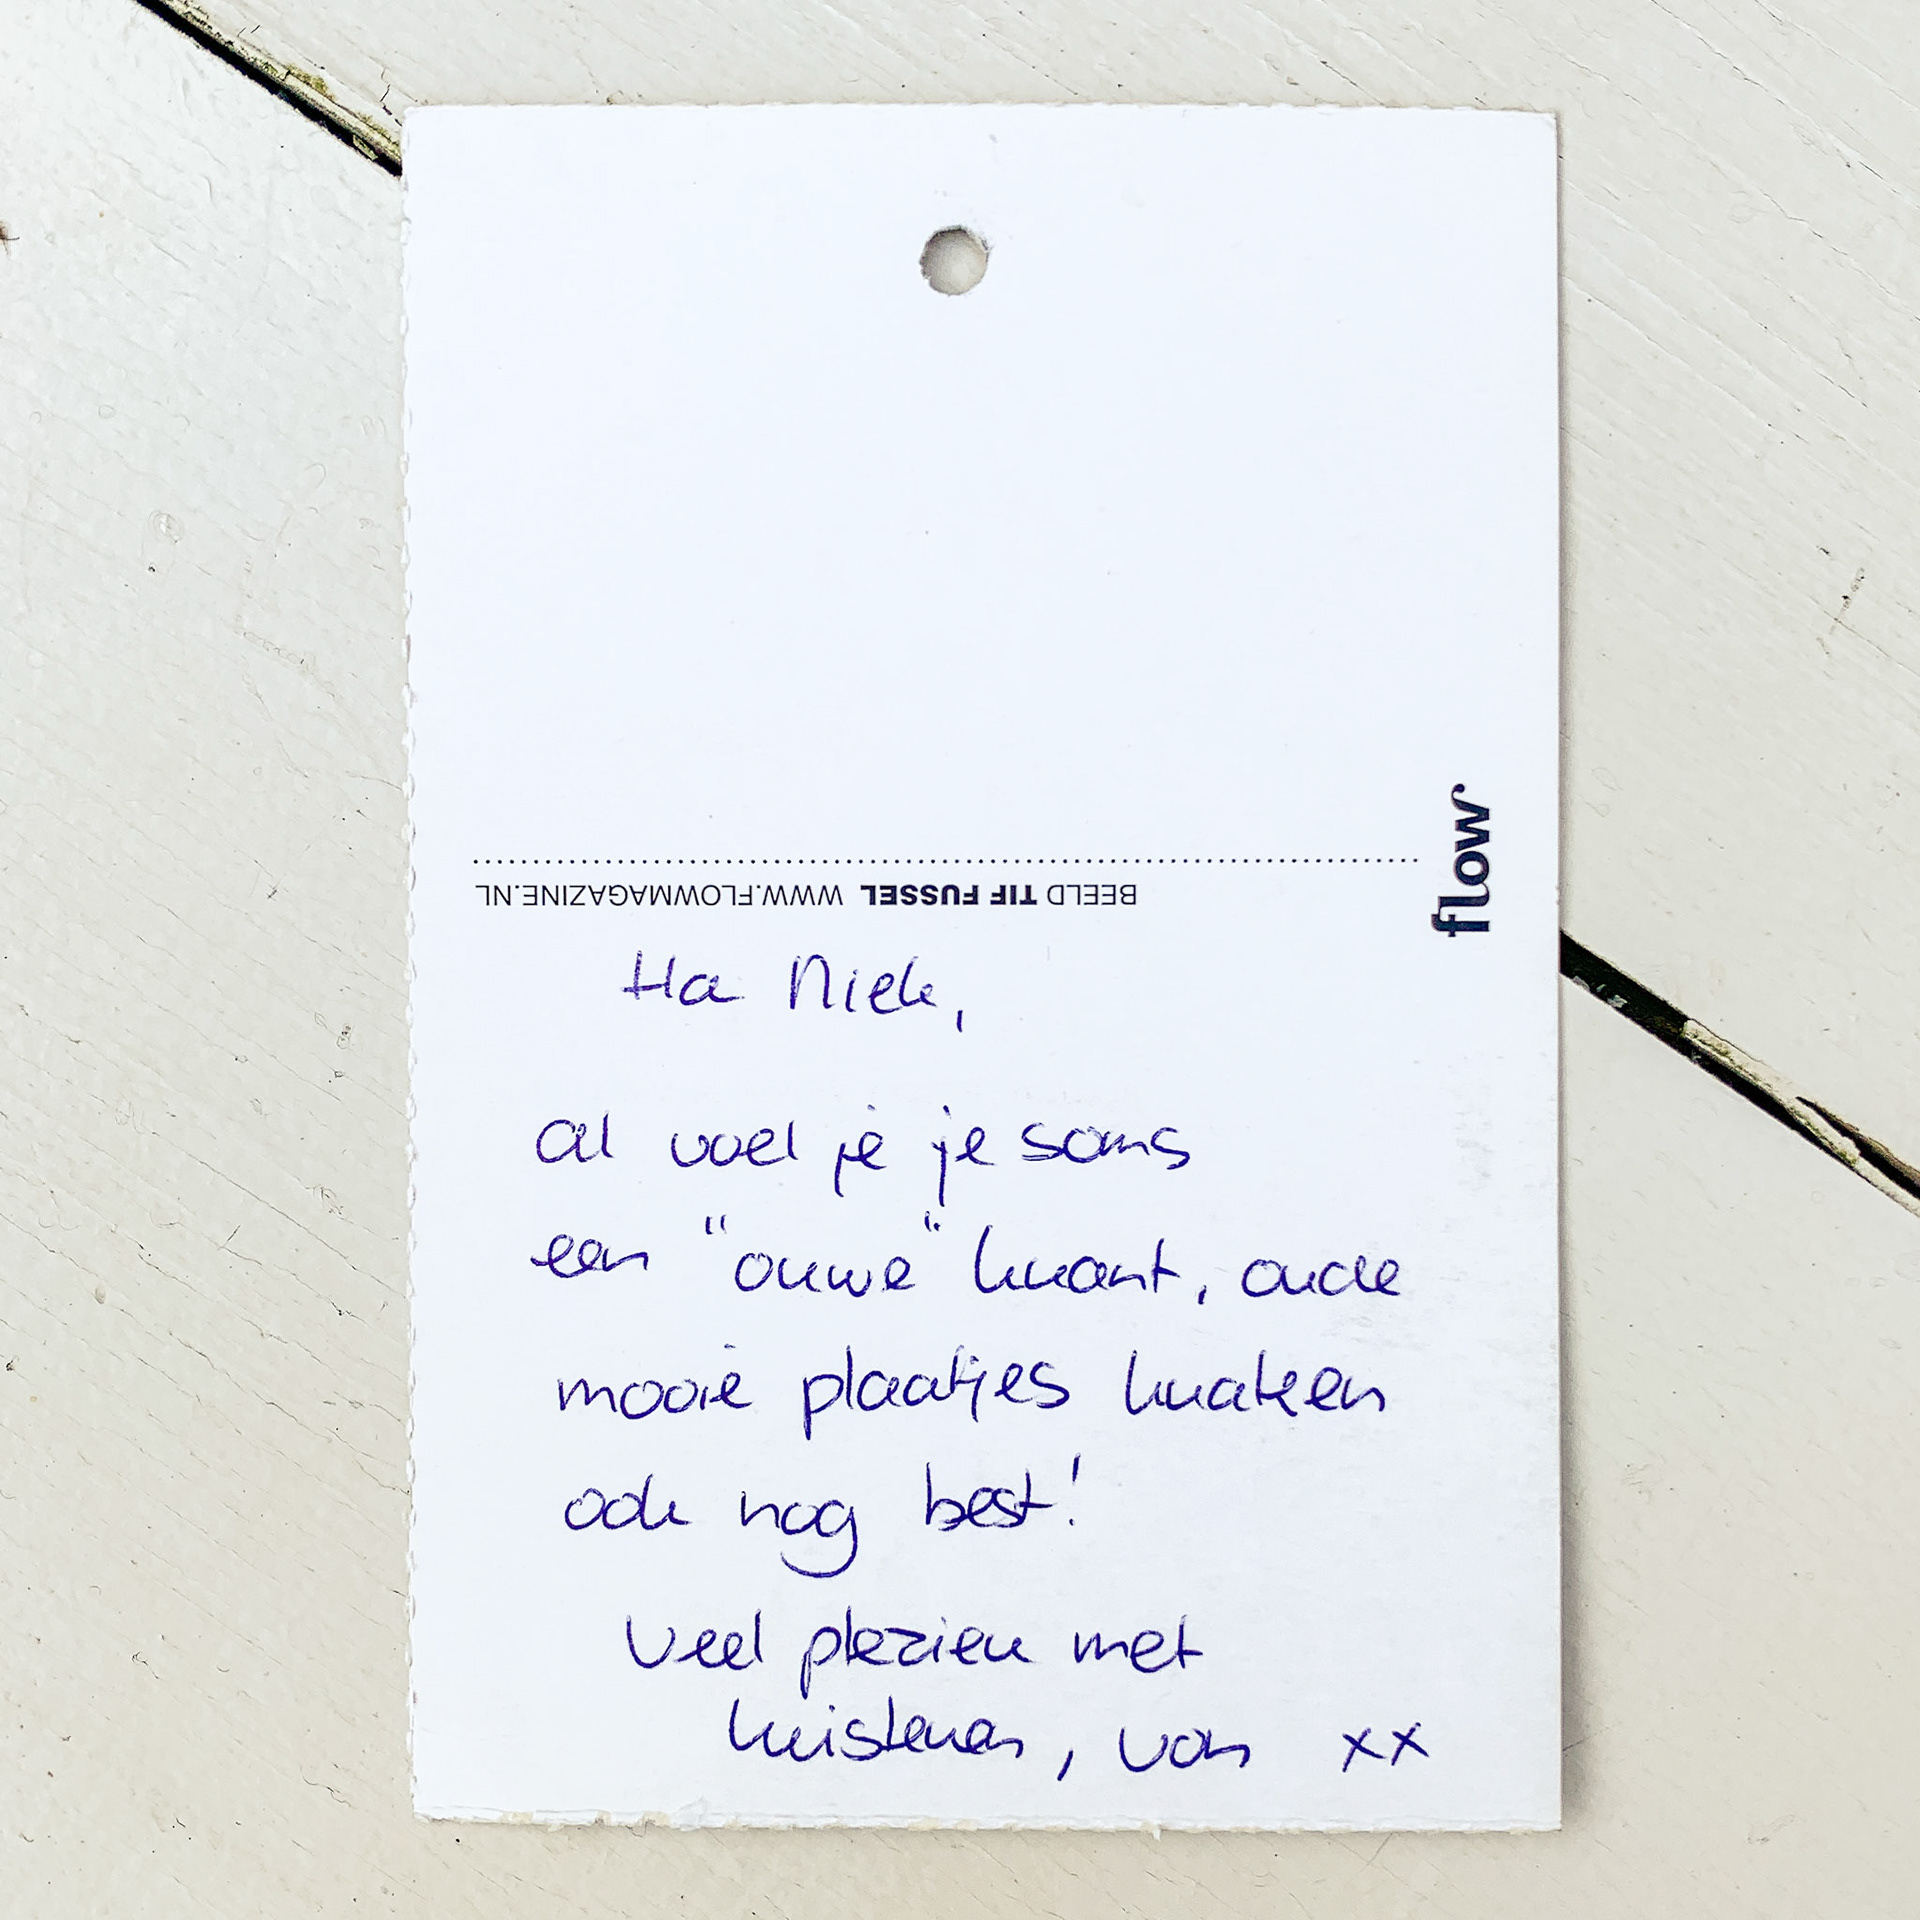 flow
BEELD TIF FUSSEL WWW.FLOWMAGAZINE.NL
Ha Niek,
al voel je je soms
een "ouwe" krant, oude
mooie plaatjes kraken
ook nog best!
Veel plezier met
luisteren, von xx